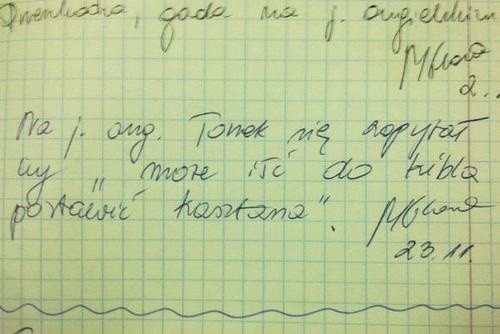 gada na j. angielskim
2.
Na j. ang. Tomek się zapytał
czy „może iść do kibla
postawić kasztana".
23.11.